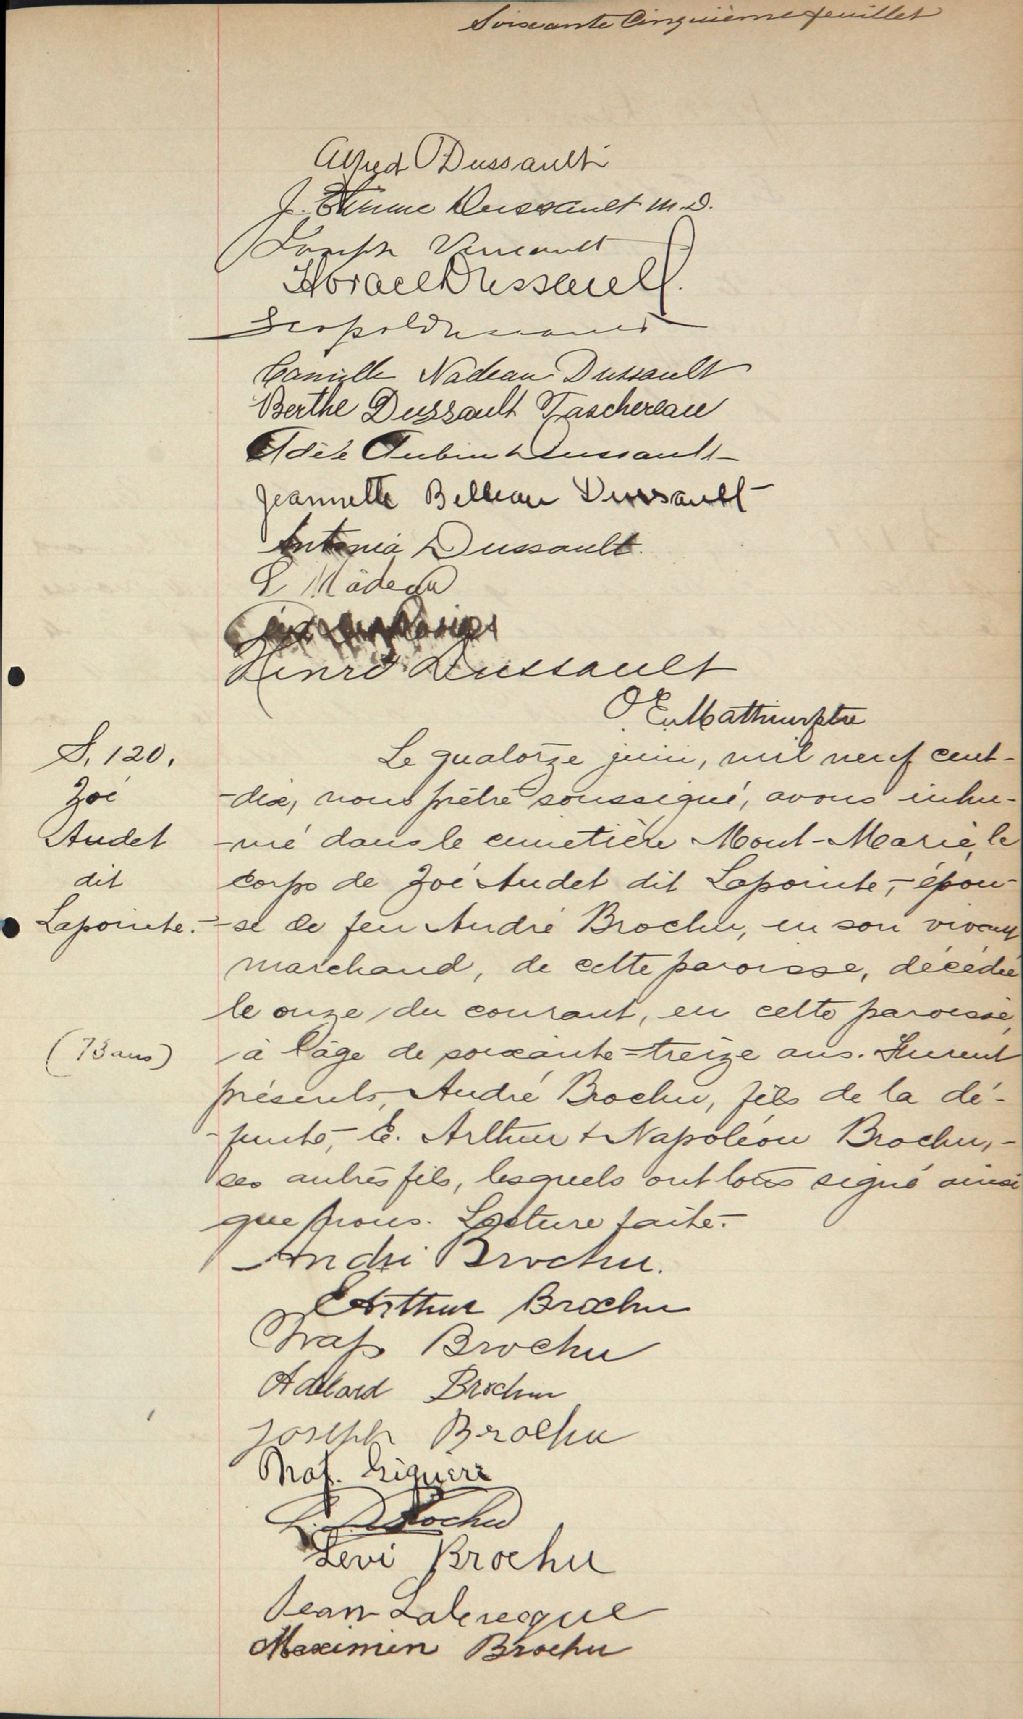 Soixante Cinquième feuillet
Alfred Dussault
J. Etienne Dussault M.D.
Joseph
Horace Dussault
Leopold
Camille Nadeau Dussault
Berthe Dussault Taschereau
Adèle Aubin Dussault
Jeannette Belleau Dussault
Antonia Dussault
Henri Dussault
O. E. Mathieu ptre
S. 120.
Zoé
Audet
dit
Lapointe.-
(73 ans)
Le quatorze juin, mil neuf cent-
-dix, nous prêtre soussigné, avons inhu-
-mé dans le cimetière Mont-Marie, le
corps de Zoé Audet dit Lapointe,- épou-
-se de feu André Brochu, en son vivant
marchand, de cette paroisse, décédée
le onze du courant, en cette paroisse,
à l'âge de soixante-treize ans. Furent
présents, André Brochu, fils de la dé-
-funte,- E. Arthur & Napoléon Brochu,-
ses autres fils, lesquels ont tous signé ainsi
que nous. Lecture faite.-
André Brochu.
E Arthur Brochu
Nap Brochu
Adelard Brochu
Joseph Brochu
Nap. Giguère
Brochu
Levi Brochu
Jean Labrecque
Maximin Brochu